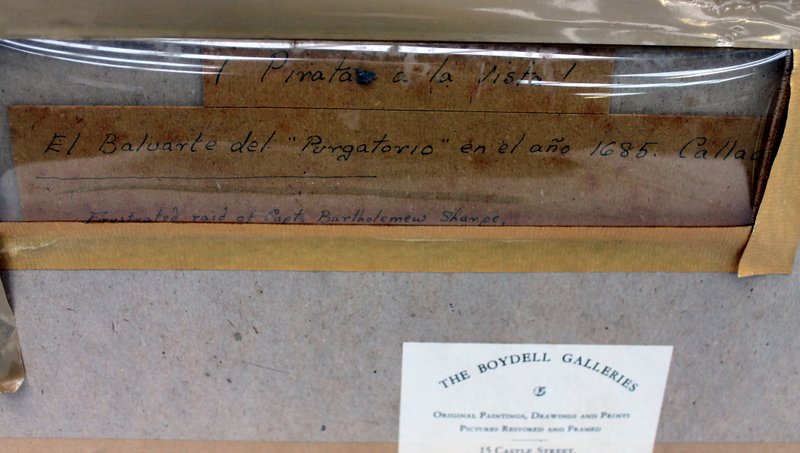 ¡ Piratas a la vista !
El Baluarte del "Purgatorio" en el año 1685. Callao
Frustrated raid of Capt. Bartholemew Sharpe.
THE BOYDELL GALLERIES
ORIGINAL PAINTINGS, DRAWINGS AND PRINTS
PICTURES RESTORED AND FRAMED
15 CASTLE STREET,